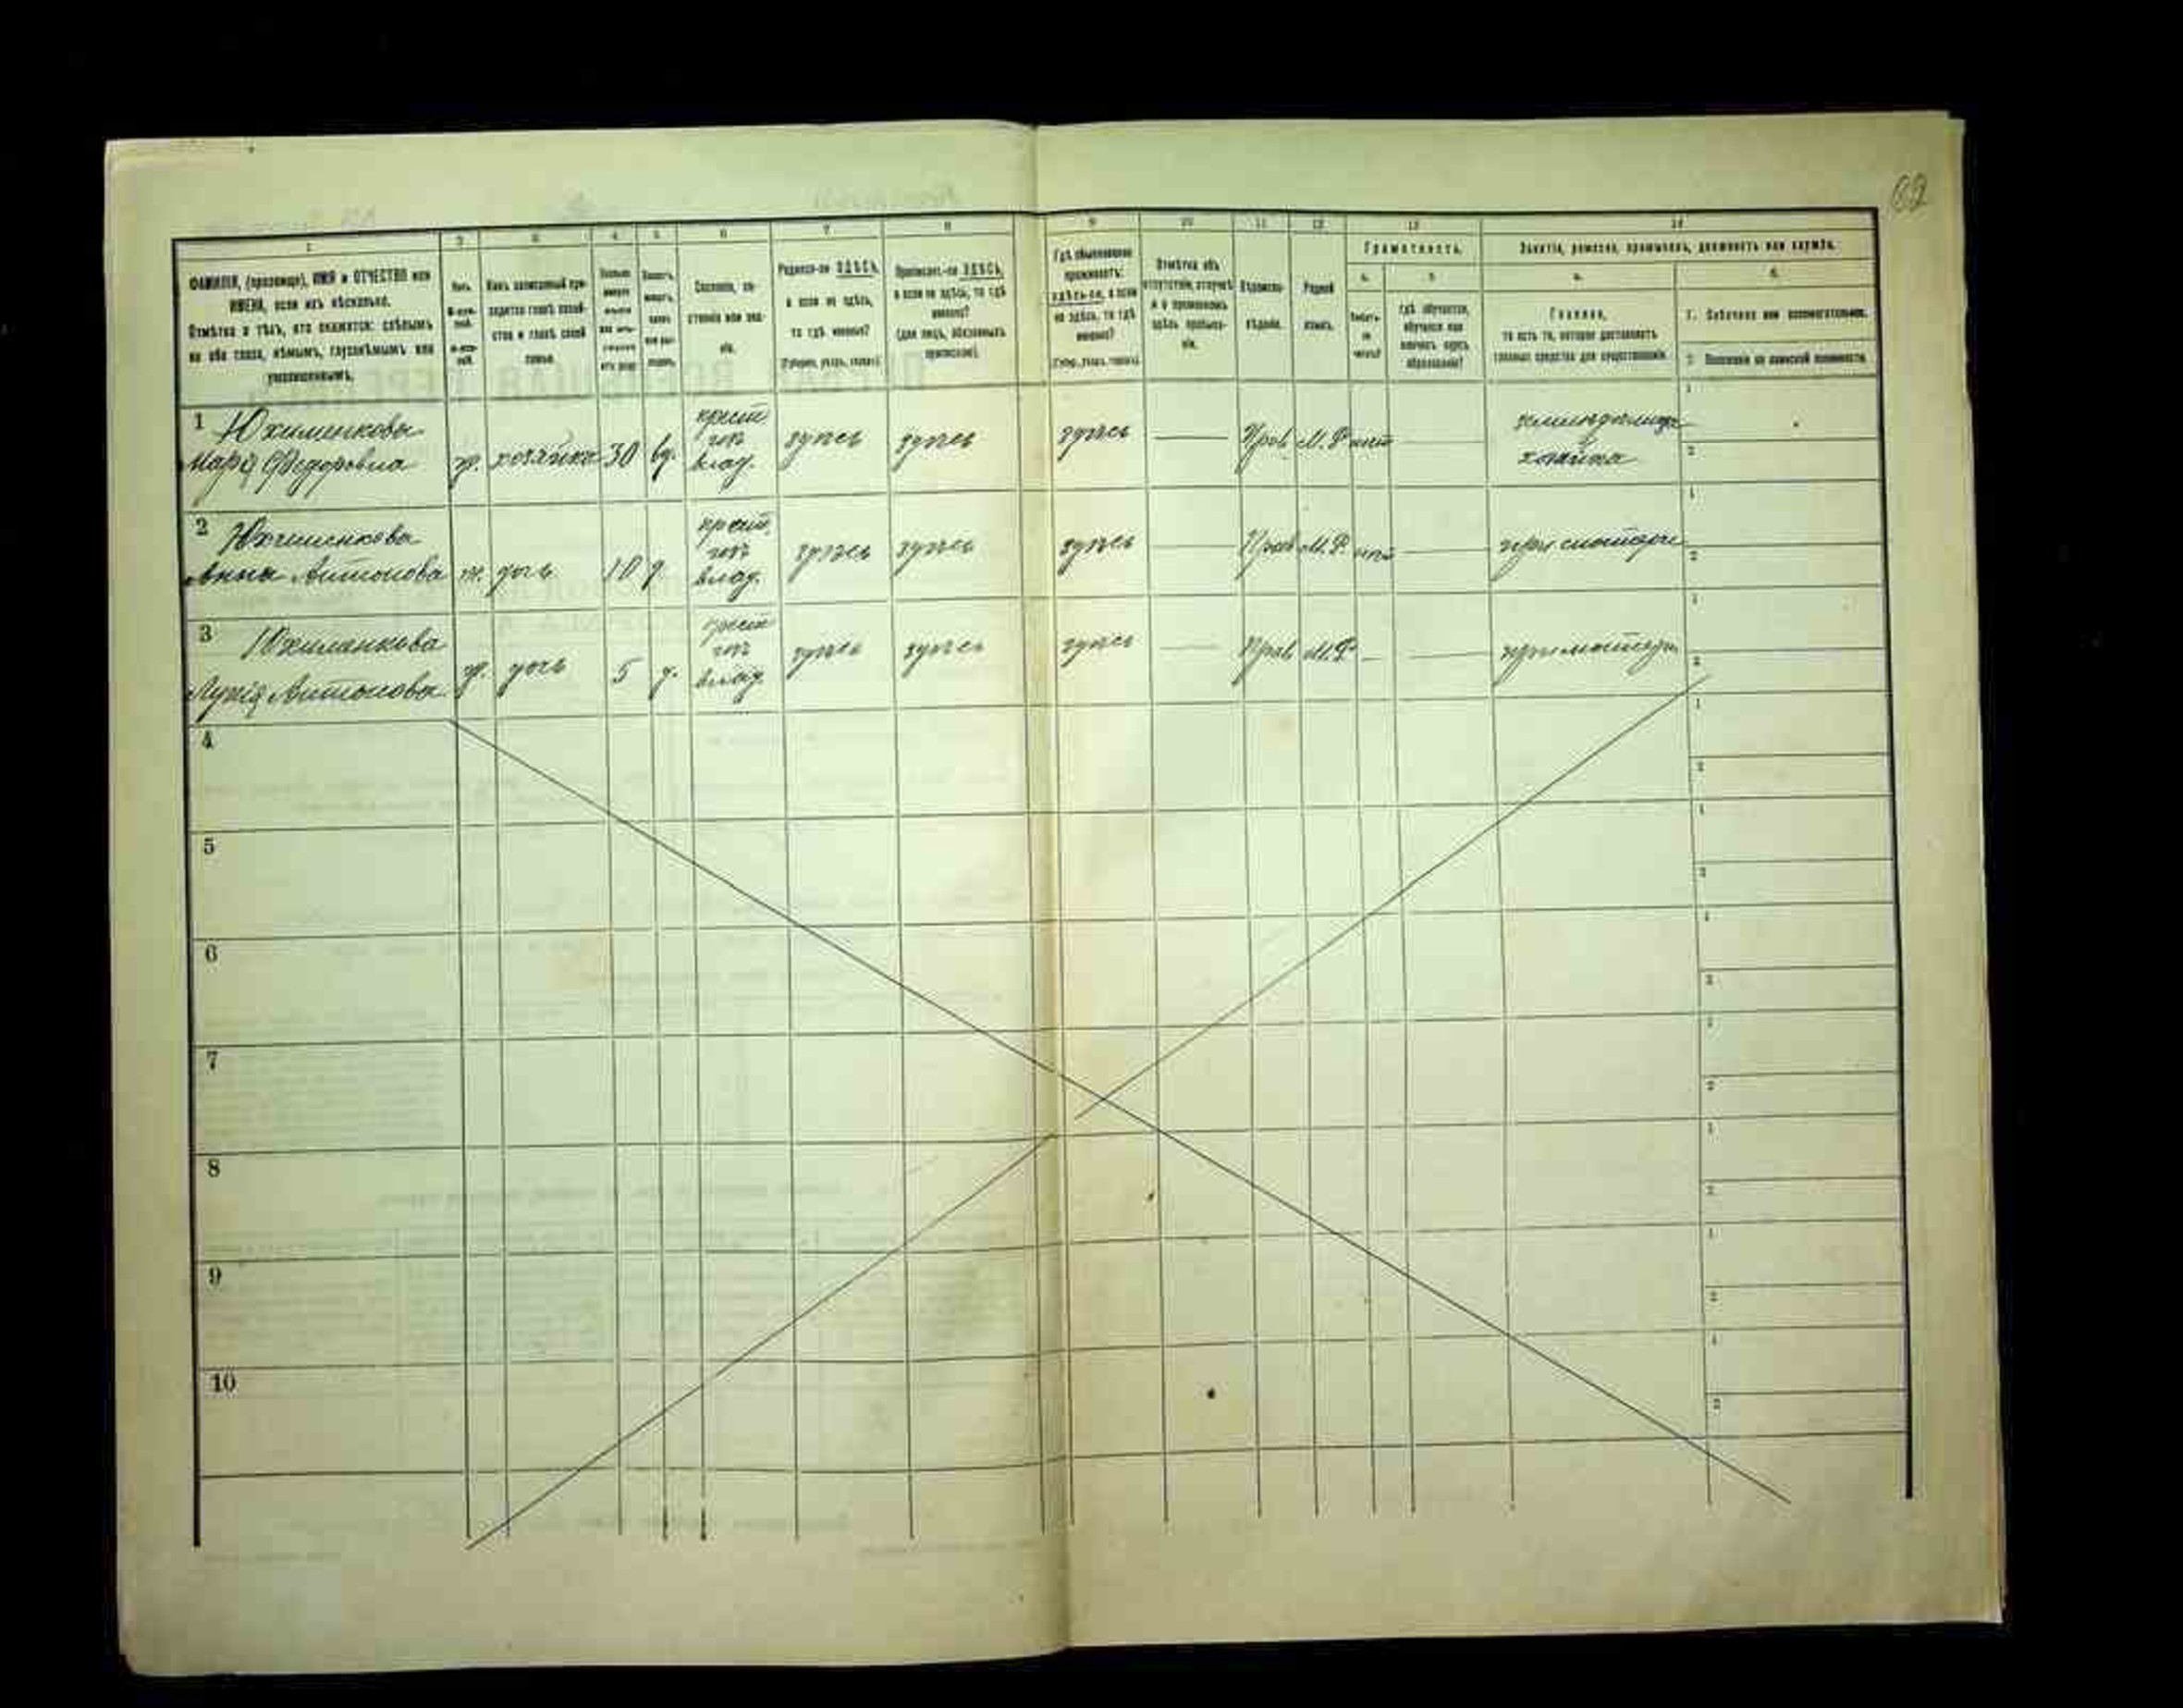 62
1 2 3 4 5 6 7 8 9 10 11 12 13 14
ФАМИЛІЯ, (прозвище), ИМЯ и ОТЧЕСТВО или
ИМЕНА, если ихъ нѣсколько.
Отмѣтка о тѣхъ, кто окажется: слѣпымъ
на оба глаза, нѣмымъ, глухонѣмымъ или
умалишеннымъ.
Полъ.
Какъ записанный при-
ходится главѣ хозяй-
ства и главѣ своей
семьи.
Сословіе, со-
стояніе или зва-
ніе.
Родился-ли ЗДѢСЬ,
а если не здѣсь,
то гдѣ именно?
(Губернія, уѣздъ, городъ)
Приписанъ-ли ЗДѢСЬ,
а если не здѣсь, то гдѣ
именно?
(для лицъ, обязанныхъ
припиской).
Гдѣ обыкновенно
проживаетъ:
здѣсь-ли, а если
не здѣсь, то гдѣ
именно?
(Губер., уѣздъ, городъ)
Отмѣтка объ
отсутствіи, отлучкѣ
и о временномъ
здѣсь пребыва-
ніи.
Вѣроиспо-
вѣданіе.
Родной
языкъ.
Грамотность.
а. б.
Умѣетъ-
ли
читать?
Гдѣ обучается,
обучался или
кончилъ курсъ
образованія?
Занятіе, ремесло, промыселъ, должность или служба.
а. б.
Главное,
то есть то, которое доставляетъ
главныя средства для существованія.
1. Побочное или вспомогательное.
2. Положеніе по воинской повинности.
1 Юхименкова
Марія Федоровна ж. хозяйка 30 вд. крест. изъ влад. здѣсь здѣсь здѣсь Прав. М.Р. нѣтъ земледѣлица хозяйка
2 Юхименкова
Антонова ж. дочь 10 д. крест. изъ влад. здѣсь здѣсь здѣсь Прав М.Р. нѣтъ при матери
3 Юхименкова
Антонова ж. дочь 5 д. крест изъ влад. здѣсь здѣсь здѣсь Прав М.Р. при матери
4
5
6
7
8
9
10